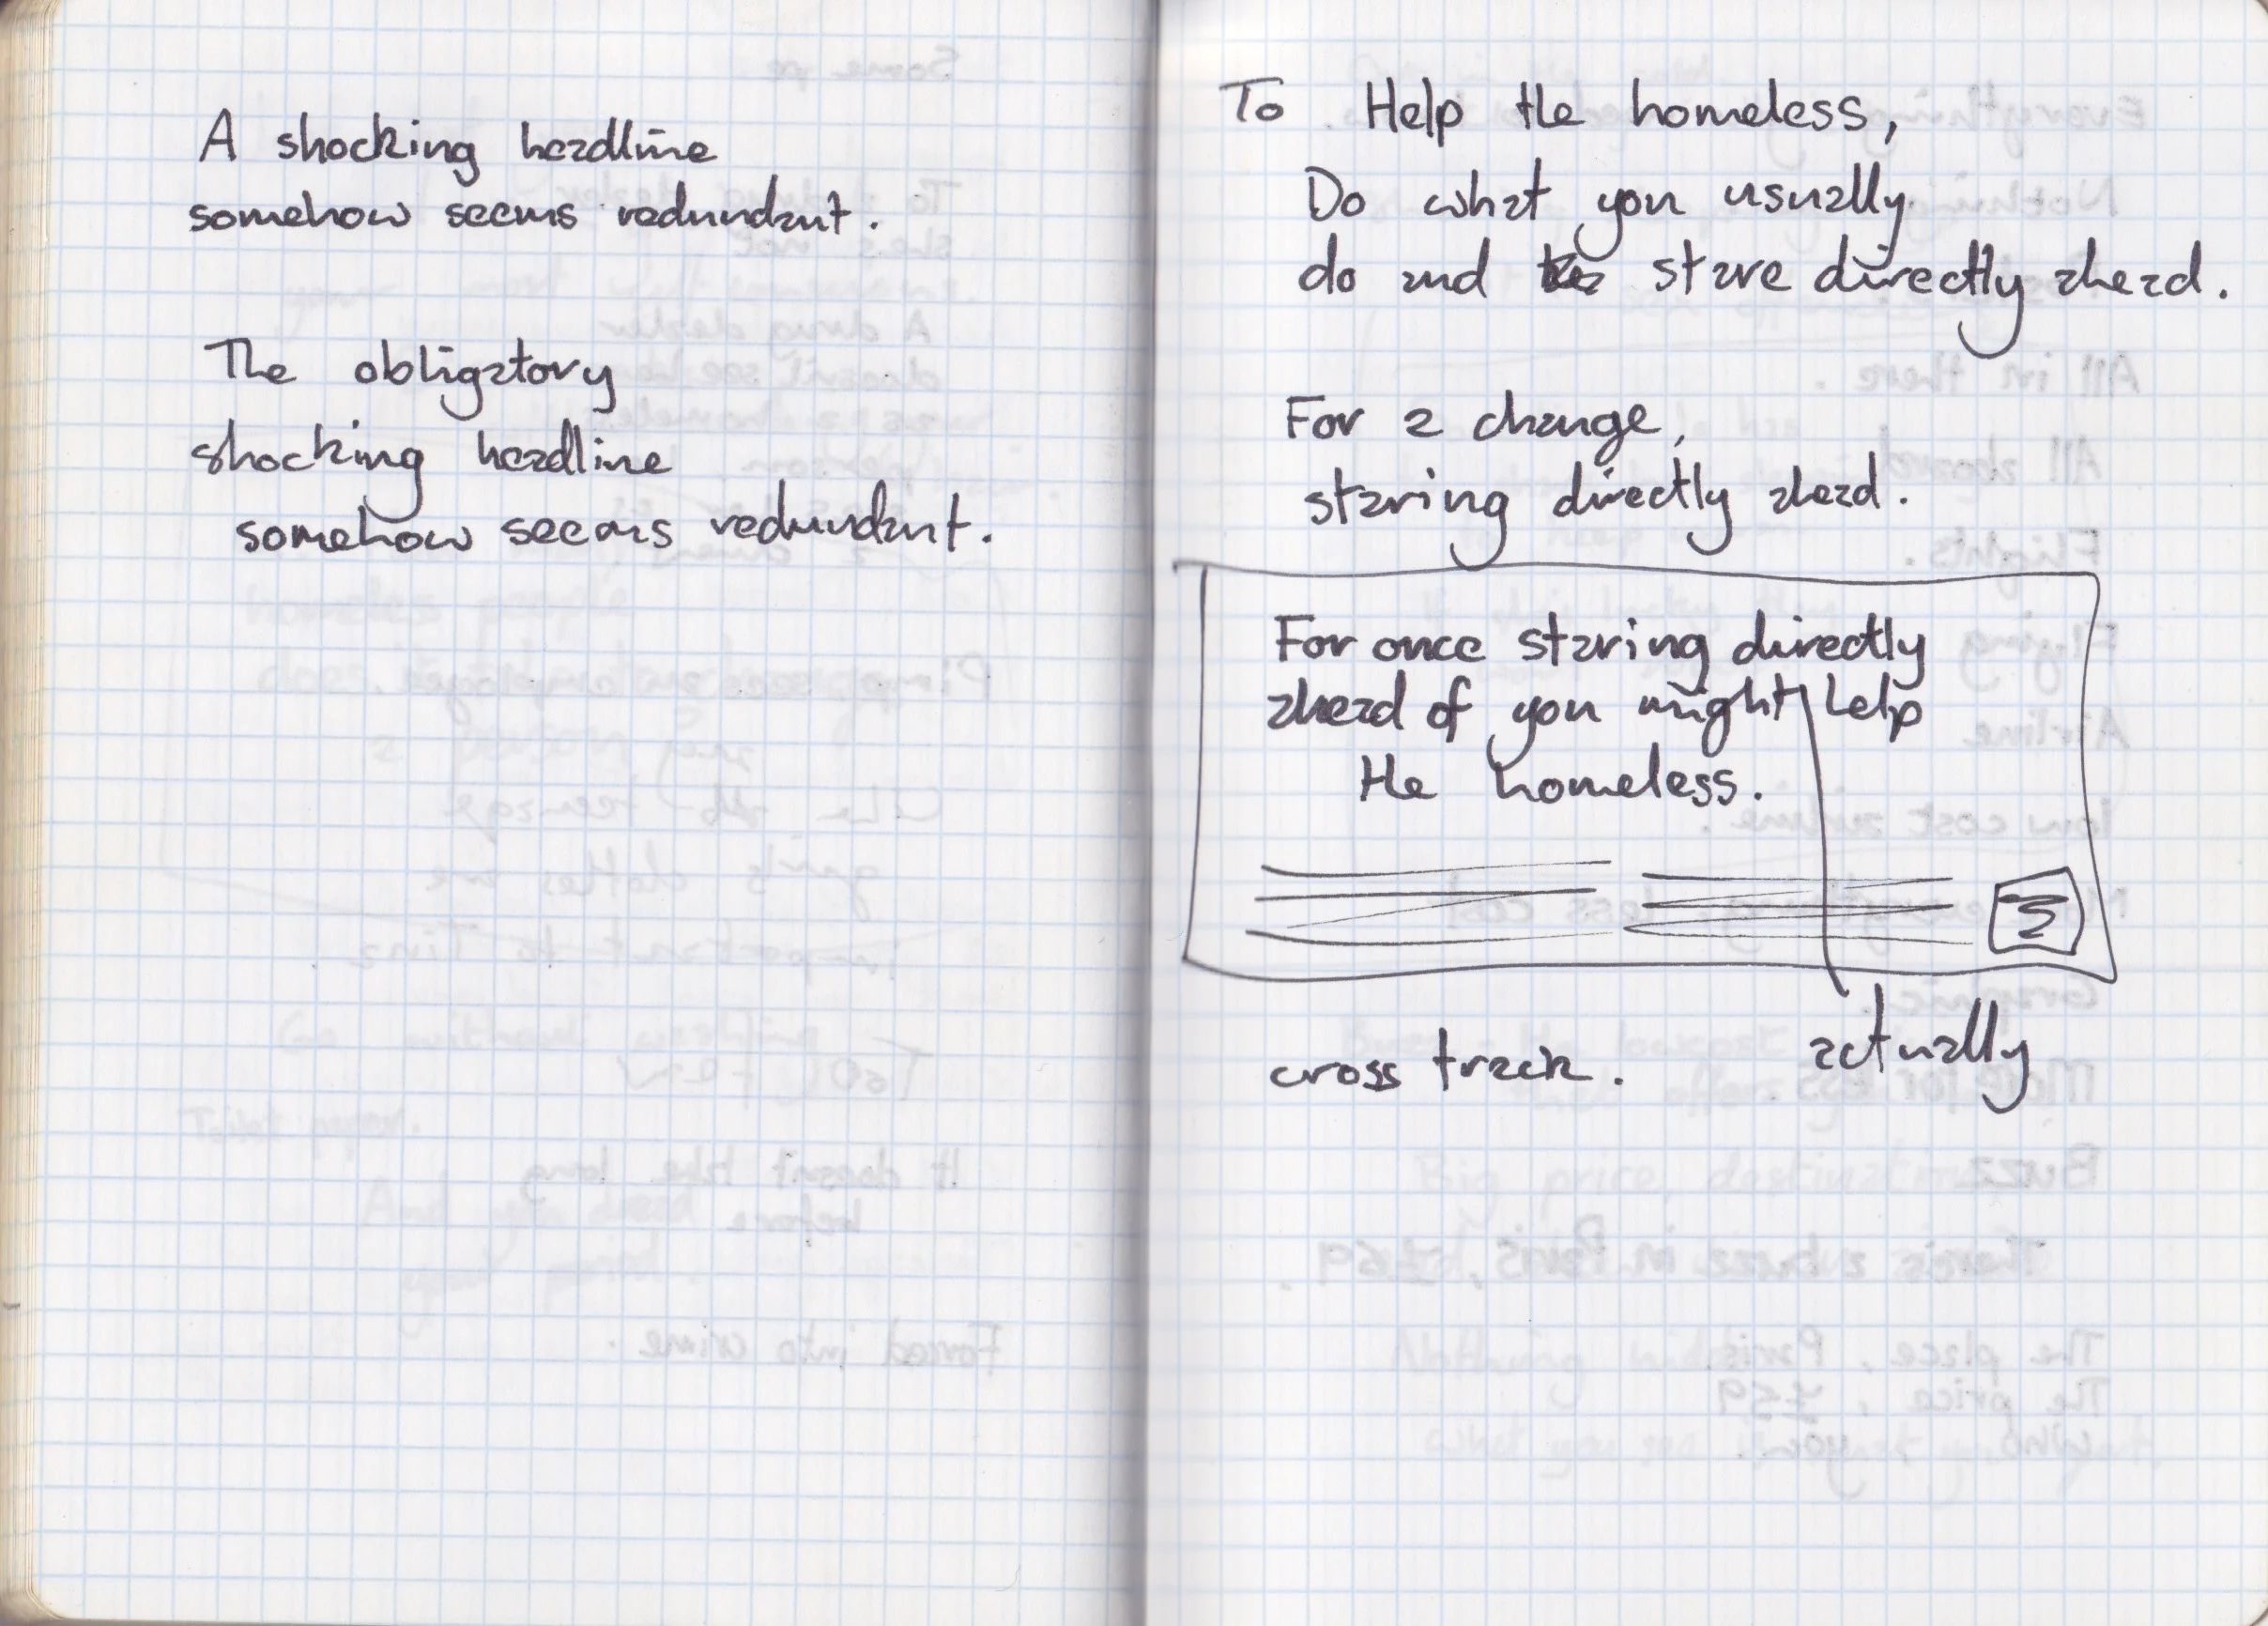 A shocking headline
somehow seems redundant.
The obligatory
shocking headline
somehow seems redundant.
To Help the homeless,
Do what you usually
do and stare directly ahead.
For a change,
staring directly ahead.
For once staring directly
ahead of you might help
the homeless.
cross track.
actually